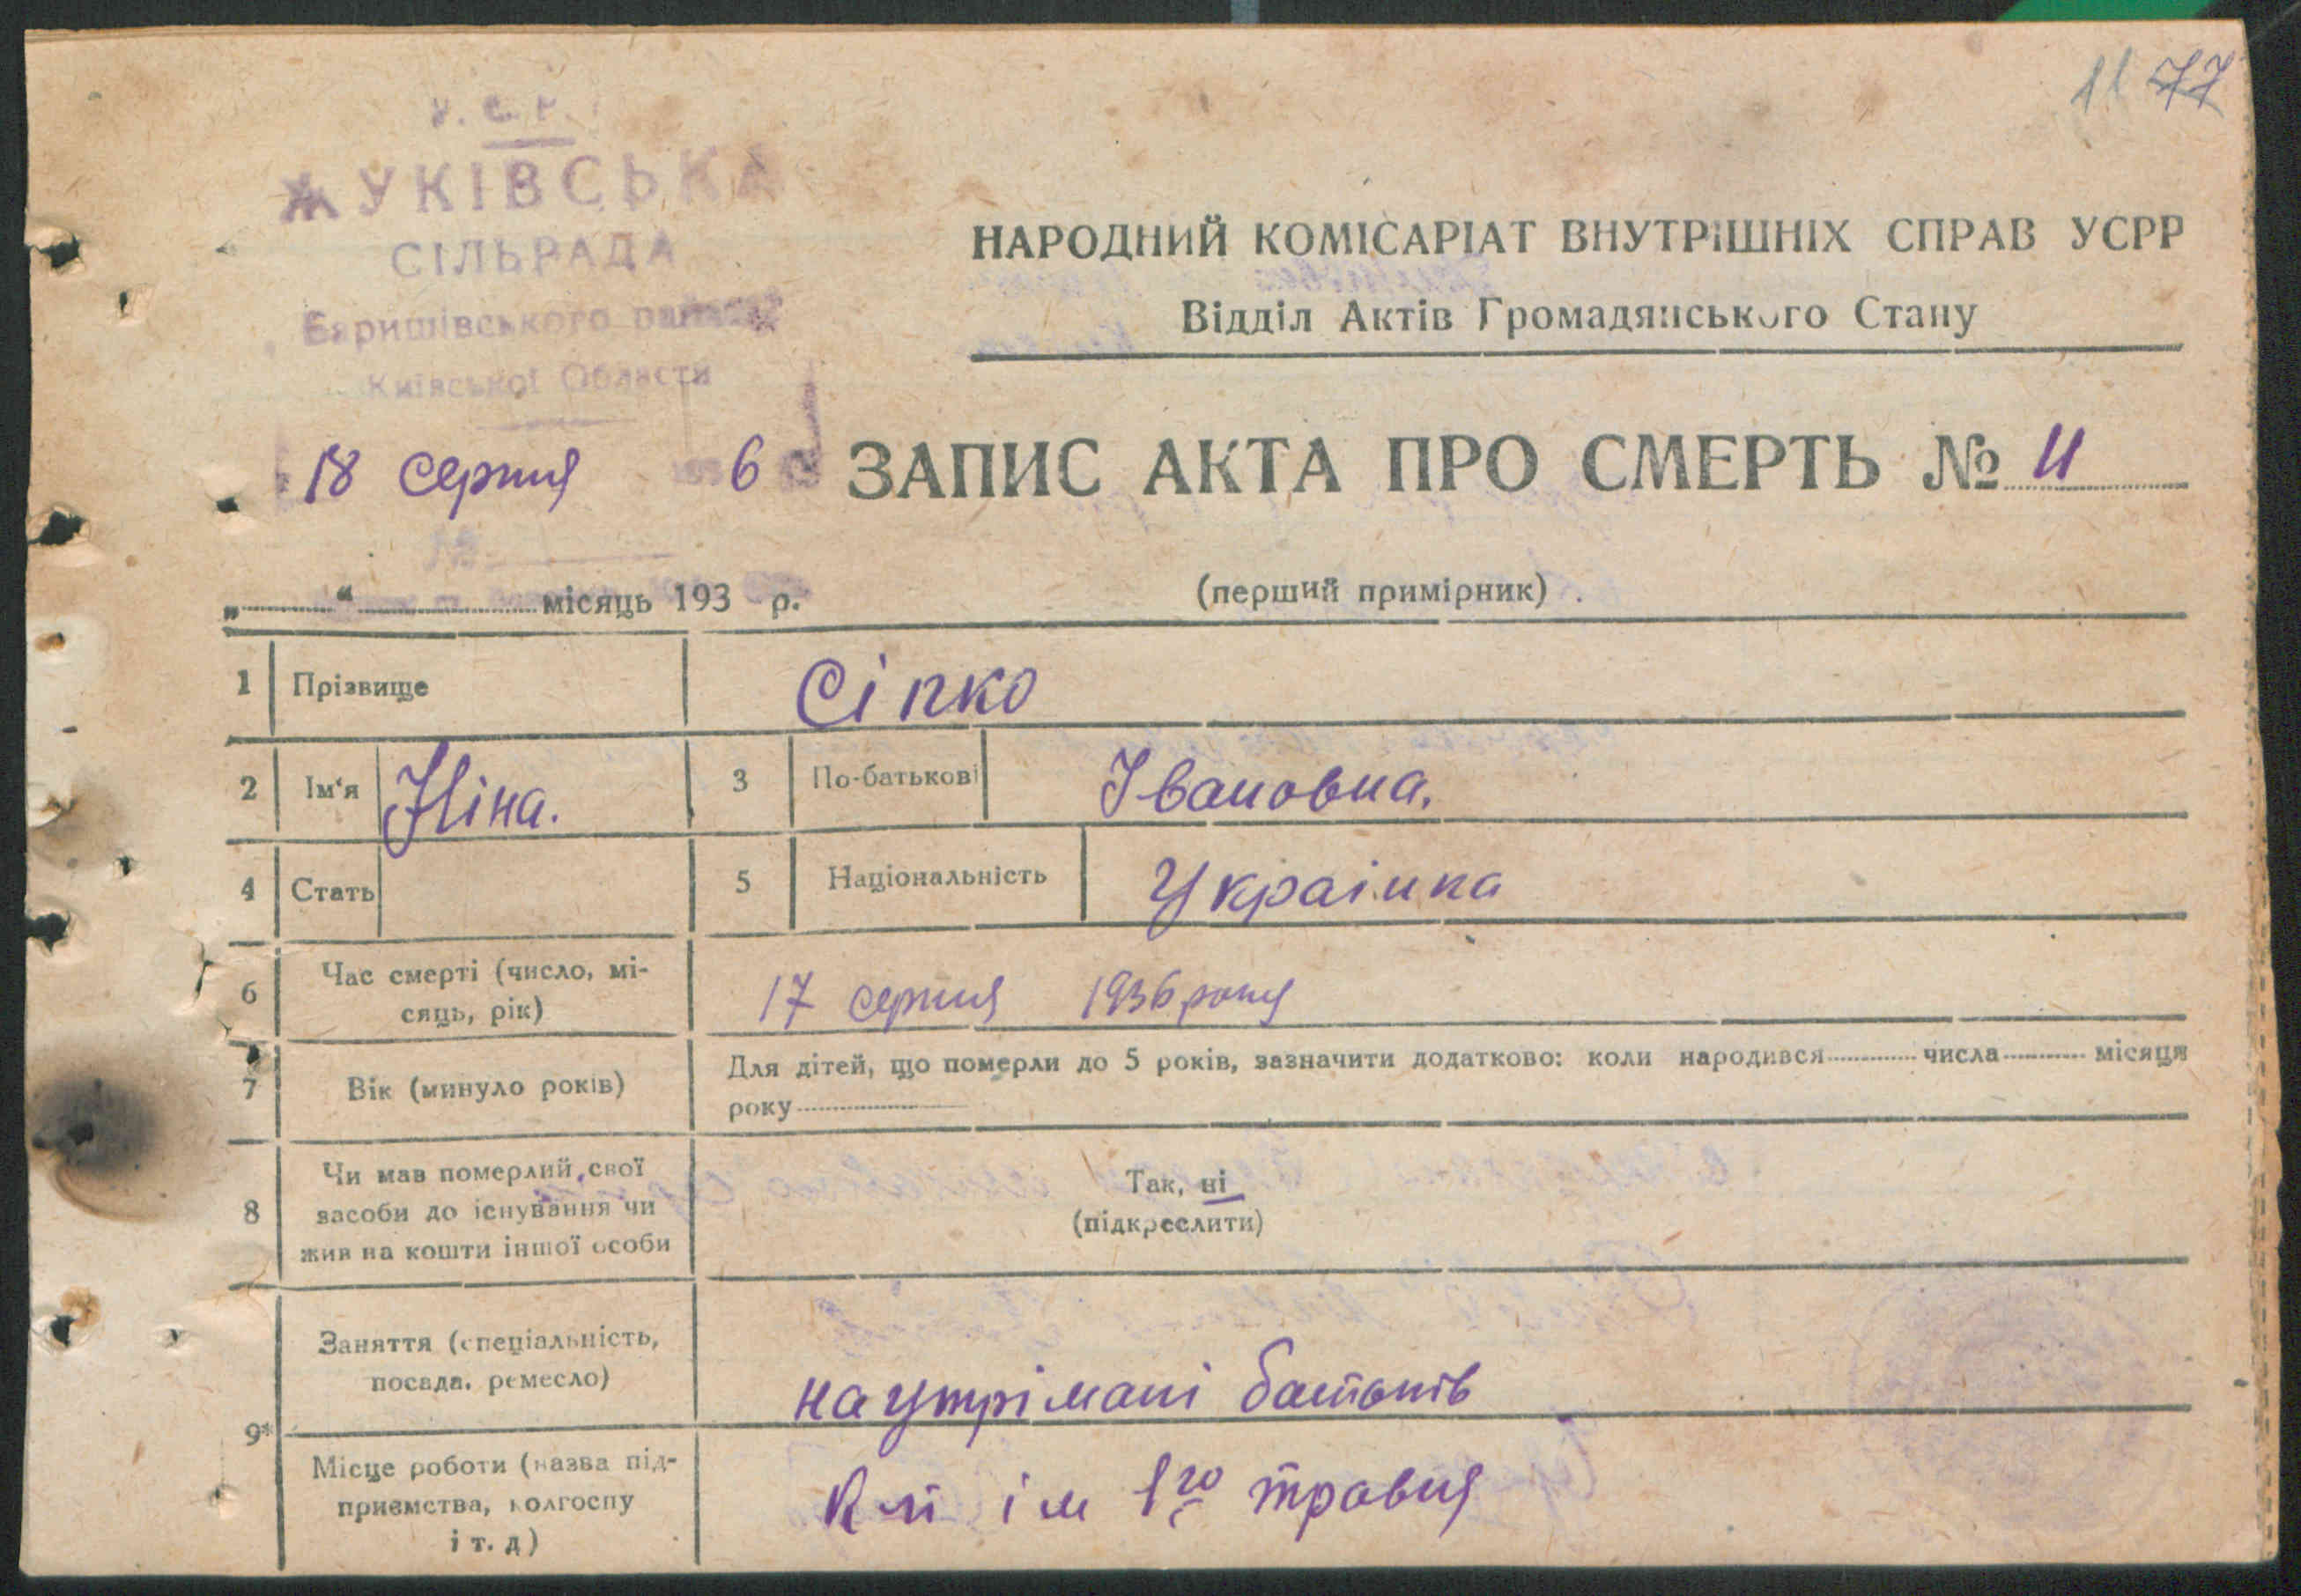 11 77
У.С.Р.
ЖУКІВСЬКА
СІЛЬРАДА
Баришівського району
Київської Области
18 серпня 6
НАРОДНИЙ КОМІСАРІАТ ВНУТРІШНІХ СПРАВ УСРР
Відділ Актів Громадянського Стану
ЗАПИС АКТА ПРО СМЕРТЬ № 11
№
„ “ місяць 193 р.
(перший примірник)
1 Прізвище Сіпко
2 Ім'я Ніна. 3 По-батькові Івановна.
4 Стать 5 Національність Украінка
6 Час смерті (число, мі-
сяць, рік) 17 серпня 1936 року
7 Вік (минуло років) Для дітей, що померли до 5 років, зазначити додатково: коли народився числа місяця
року
8 Чи мав померлий свої
засоби до існування чи
жив на кошти іншої особи
Так, ні
(підкреслити)
9*
Заняття (спеціальність,
посада, ремесло) на утрімані батьків
Місце роботи (назва під-
приємства, колгоспу
і т. д) ім 1го травня